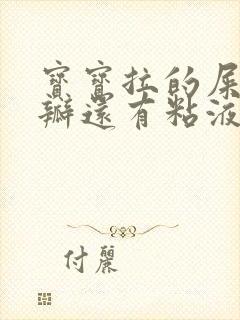 寶寶拉的屎
瓣還有粘液
付麗